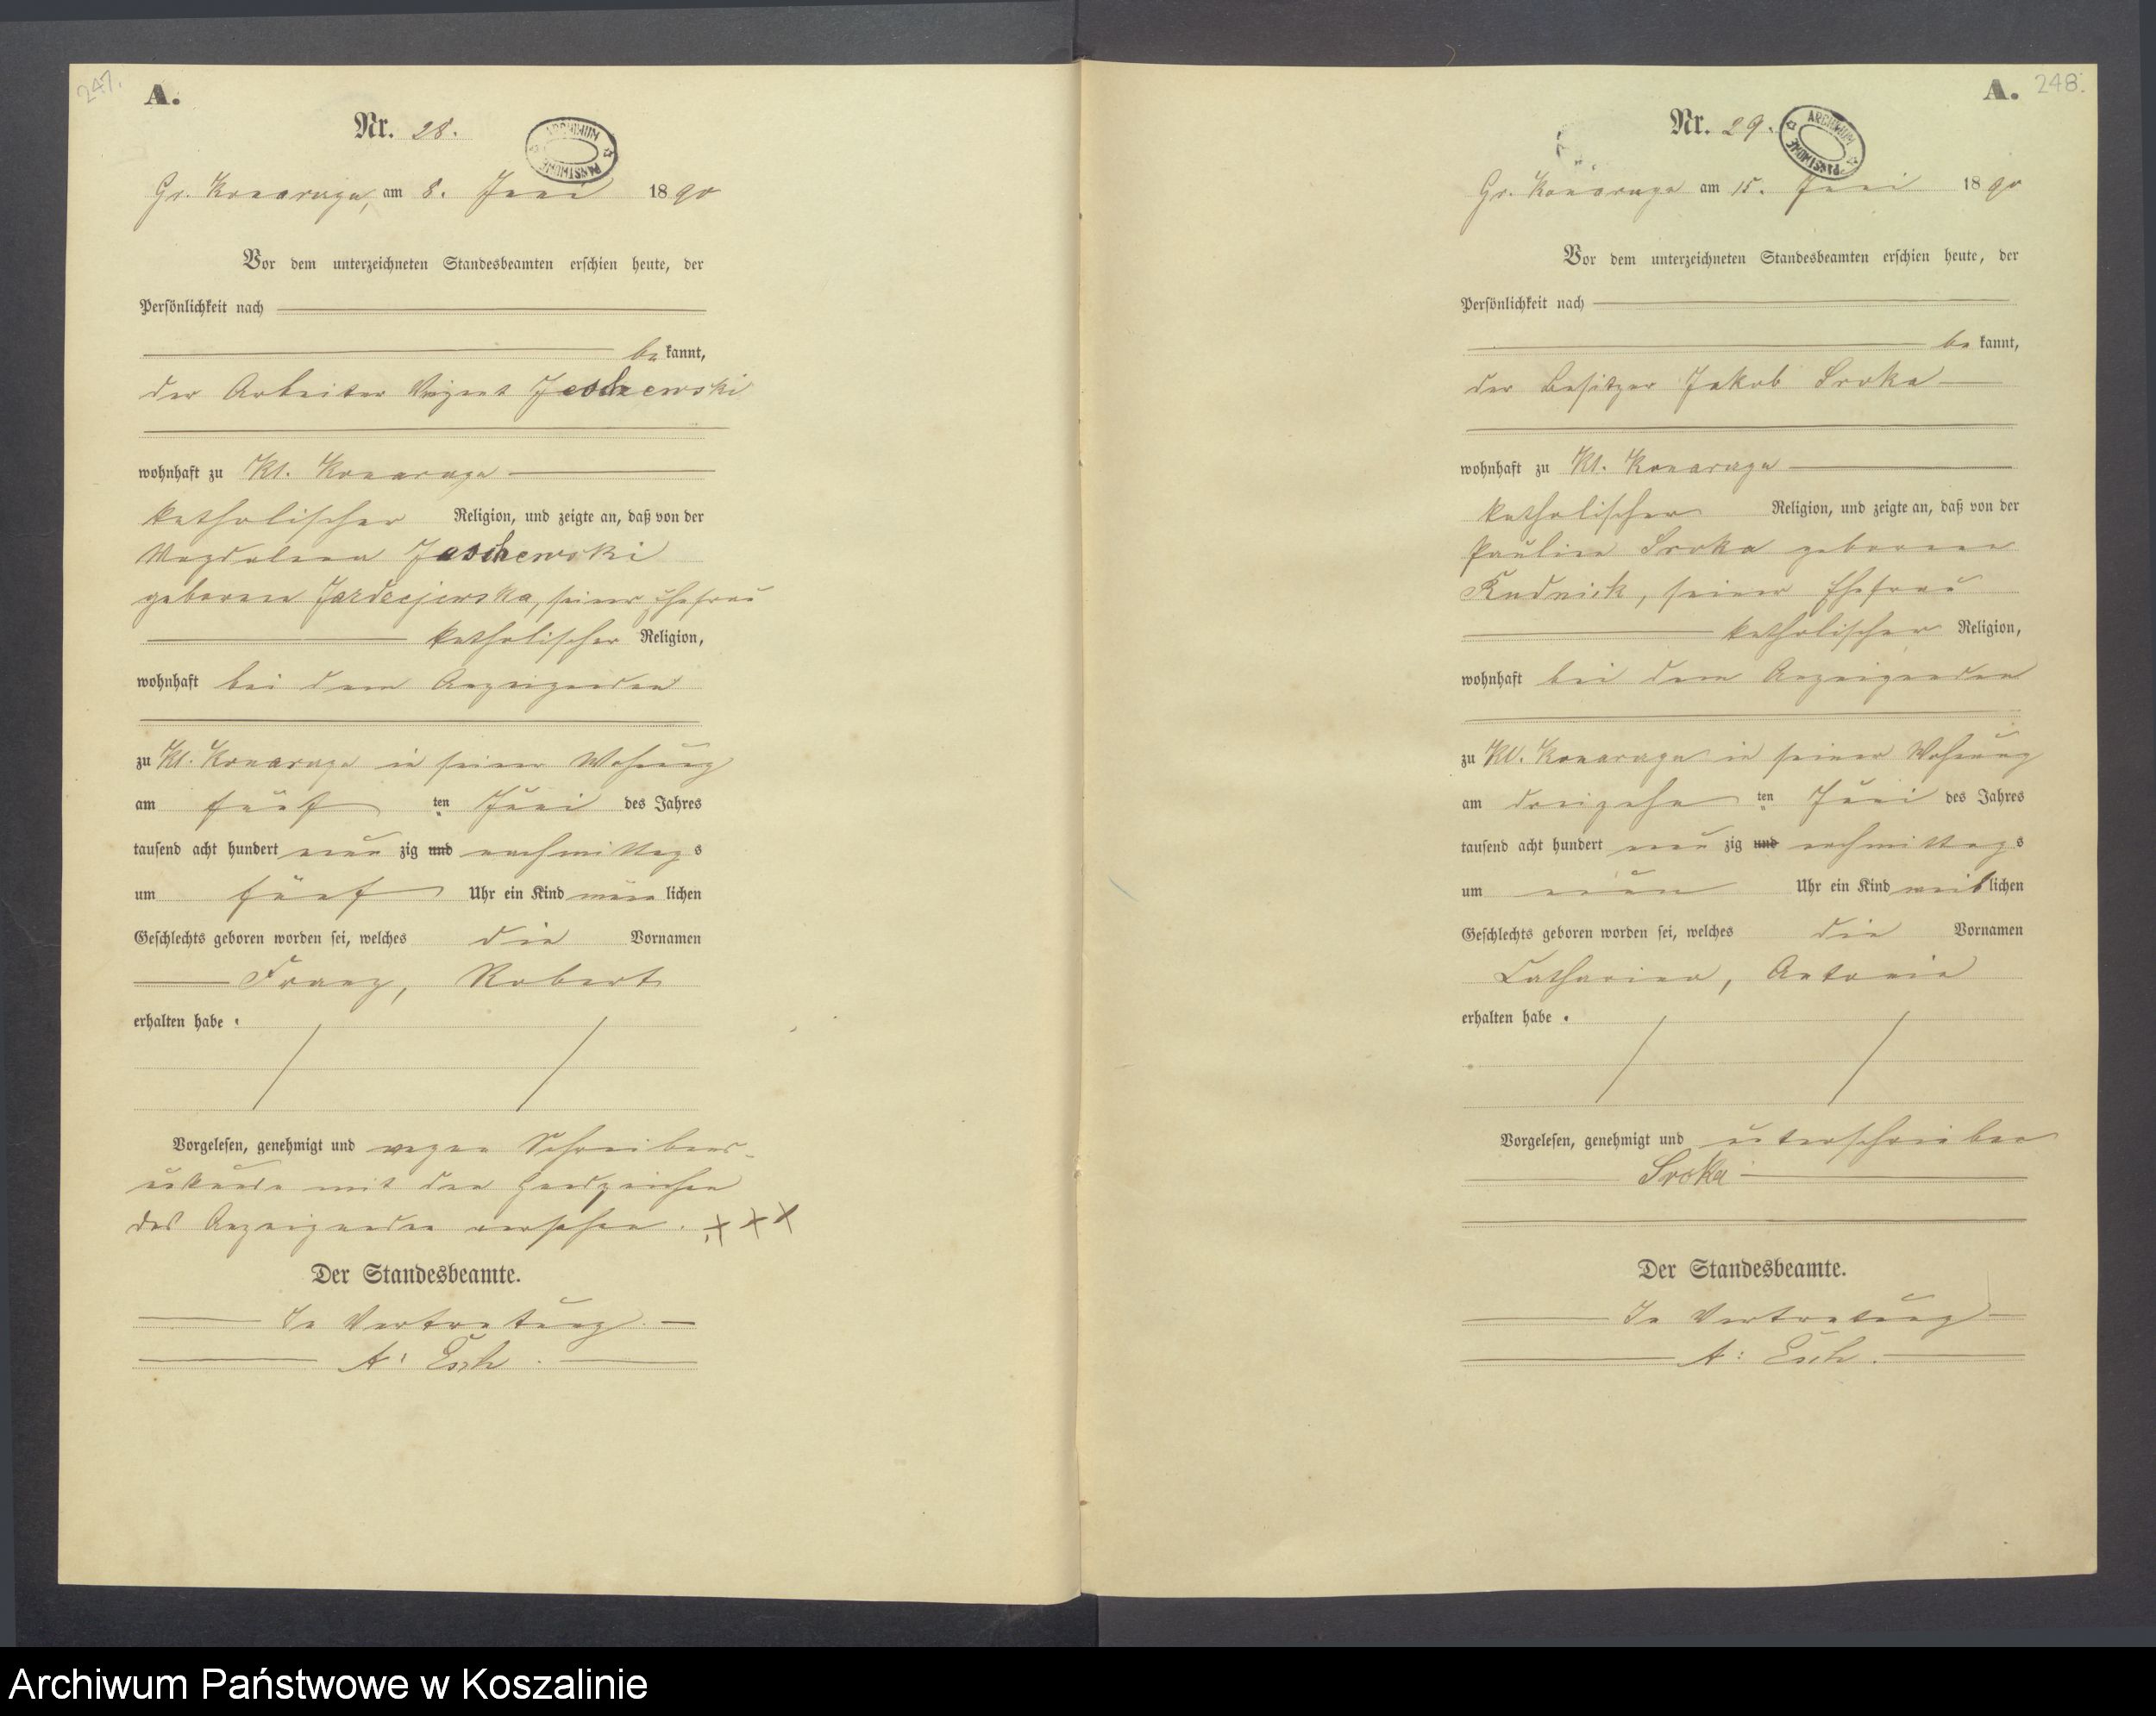 247.
A.
Nr. 28.
ARCHIWUM PAŃSTWOWE
Gr. Konarczyn, am 8. Juni 1890
Vor dem unterzeichneten Standesbeamten erschien heute, der
Persönlichkeit nach
be kannt,
der Arbeiter
wohnhaft zu Kl. Konarczyn
katholischer Religion, und zeigte an, daß von der
Magdalena
geborene seiner Ehefrau
katholischer Religion,
wohnhaft bei dem Anzeigenden
zu Kl. Konarczyn in seiner Wohnung
am fünf ten Juni des Jahres
tausend acht hundert neun zig und nachmittags
um fünf Uhr ein Kind männ lichen
Geschlechts geboren worden sei, welches die Vornamen
Franz, Robert
erhalten habe.
Vorgelesen, genehmigt und wegen Schreibens-
unkunde mit den Handzeichen
des Anzeigenden versehen. xxx
Der Standesbeamte.
In Vertretung.
A: Esch.
A.
248.
Nr. 29.
ARCHIWUM PAŃSTWOWE
Gr. Konarczyn am 15. Juni 1890
Vor dem unterzeichneten Standesbeamten erschien heute, der
Persönlichkeit nach
be kannt,
der Besitzer Jakob Sroka
wohnhaft zu Kl. Konarczyn
katholischer Religion, und zeigte an, daß von der
Pauline Sroka geborene
Rudnick, seiner Ehefrau
katholischer Religion,
wohnhaft bei dem Anzeigenden
zu Kl. Konarczyn in seiner Wohnung
am dreizehn ten Juni des Jahres
tausend acht hundert neun zig und nachmittags
um neun Uhr ein Kind weib lichen
Geschlechts geboren worden sei, welches die Vornamen
Catharina, Antonie
erhalten habe.
Vorgelesen, genehmigt und unterschrieben
Sroka
Der Standesbeamte.
In Vertretung
A: Esch.
Archiwum Państwowe w Koszalinie